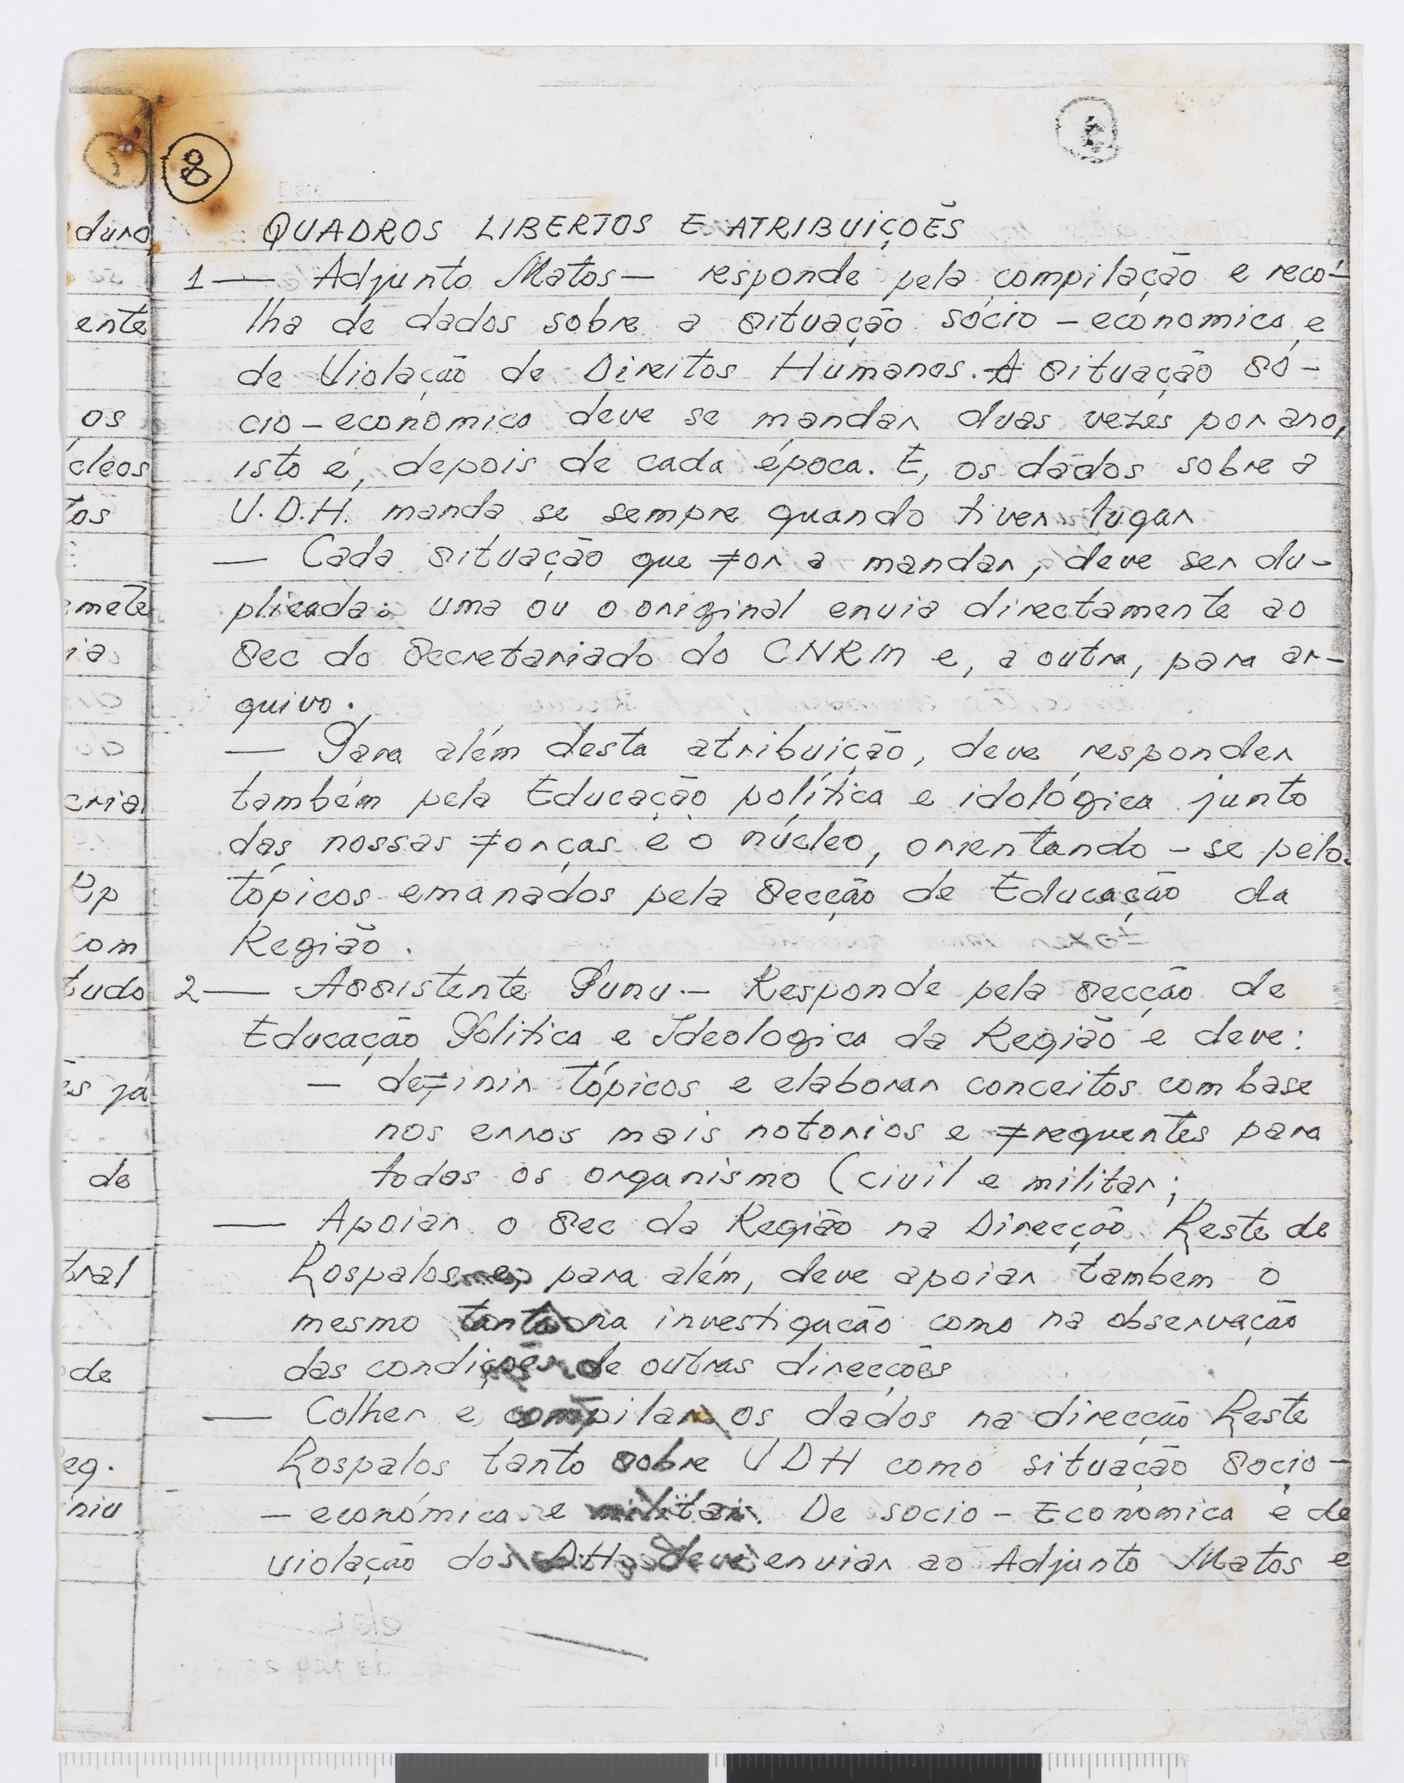 8
QUADROS LIBERTOS E ATRIBUIÇOÊS
1 — Adjunto Matos — responde pela compilação e reco-
lha de dados sobre a situação sócio - economica e
de Violação de Direitos Humanos. A situação só-
cio - economica deve se mandar duas vezes por ano,
isto é, depois de cada época. E, os dados sobre a
V.D.H. manda se sempre quando tiver lugar
— Cada situação que for a mandar, deve ser du-
plicada: uma ou o original envia directamente ao
Sec do Secretariado do CNRM e, a outra, para ar-
quivo.
— Para além desta atribuição, deve responder
também pela Educação política e idológica junto
das nossas forças e o núcleo, orientando - se pelo
tópicos emanados pela Secção de Educação da
Região.
2 — Assistente Punu - Responde pela Secção de
Educação Politica e Ideologica da Região e deve:
- definir tópicos e elaborar conceitos com base
nos erros mais notorios e frequentes para
todos os organismo (civil e militar;
— Apoiar o Sec da Região na Direcção Leste de
Lospalos e, para além, deve apoiar tambem o
mesmo tanto na investigação como na observação
das condições de outras direcções
— Colher e compilar os dados na direcção Leste
Lospalos tanto sobre VDH como situação socio-
- económica e militar. De socio - Economica e de
violação dos DH, deve enviar ao Adjunto Matos e
duro
ente
os
cleos
tos
mete
ia
cria
Rp
com
tudo
es já
de
tral
de
eg.
niu